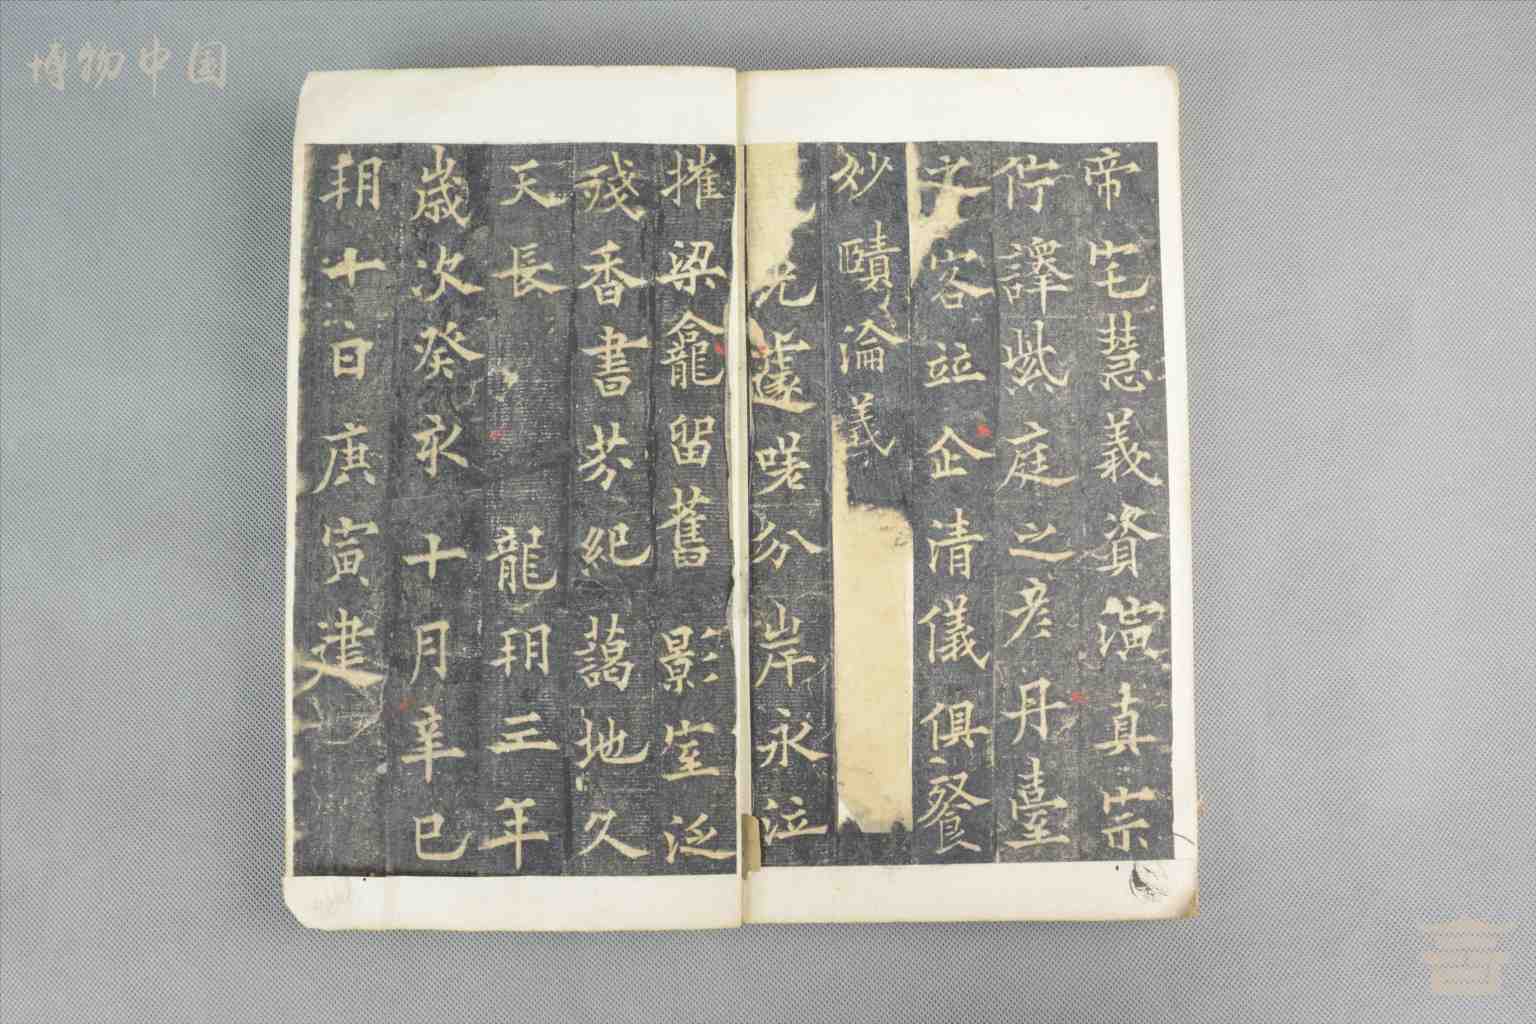 博物中国
帝宅慧義資演真宗
佇譯紫庭之彦丹臺
客並企清儀俱餐
妙賾淪義
光遽嗟分岸永泣
摧梁龕留舊影室泛
殘香書芬紀藹地久
天長 龍朔三年
歲次癸亥十月辛巳
朔十日庚寅建